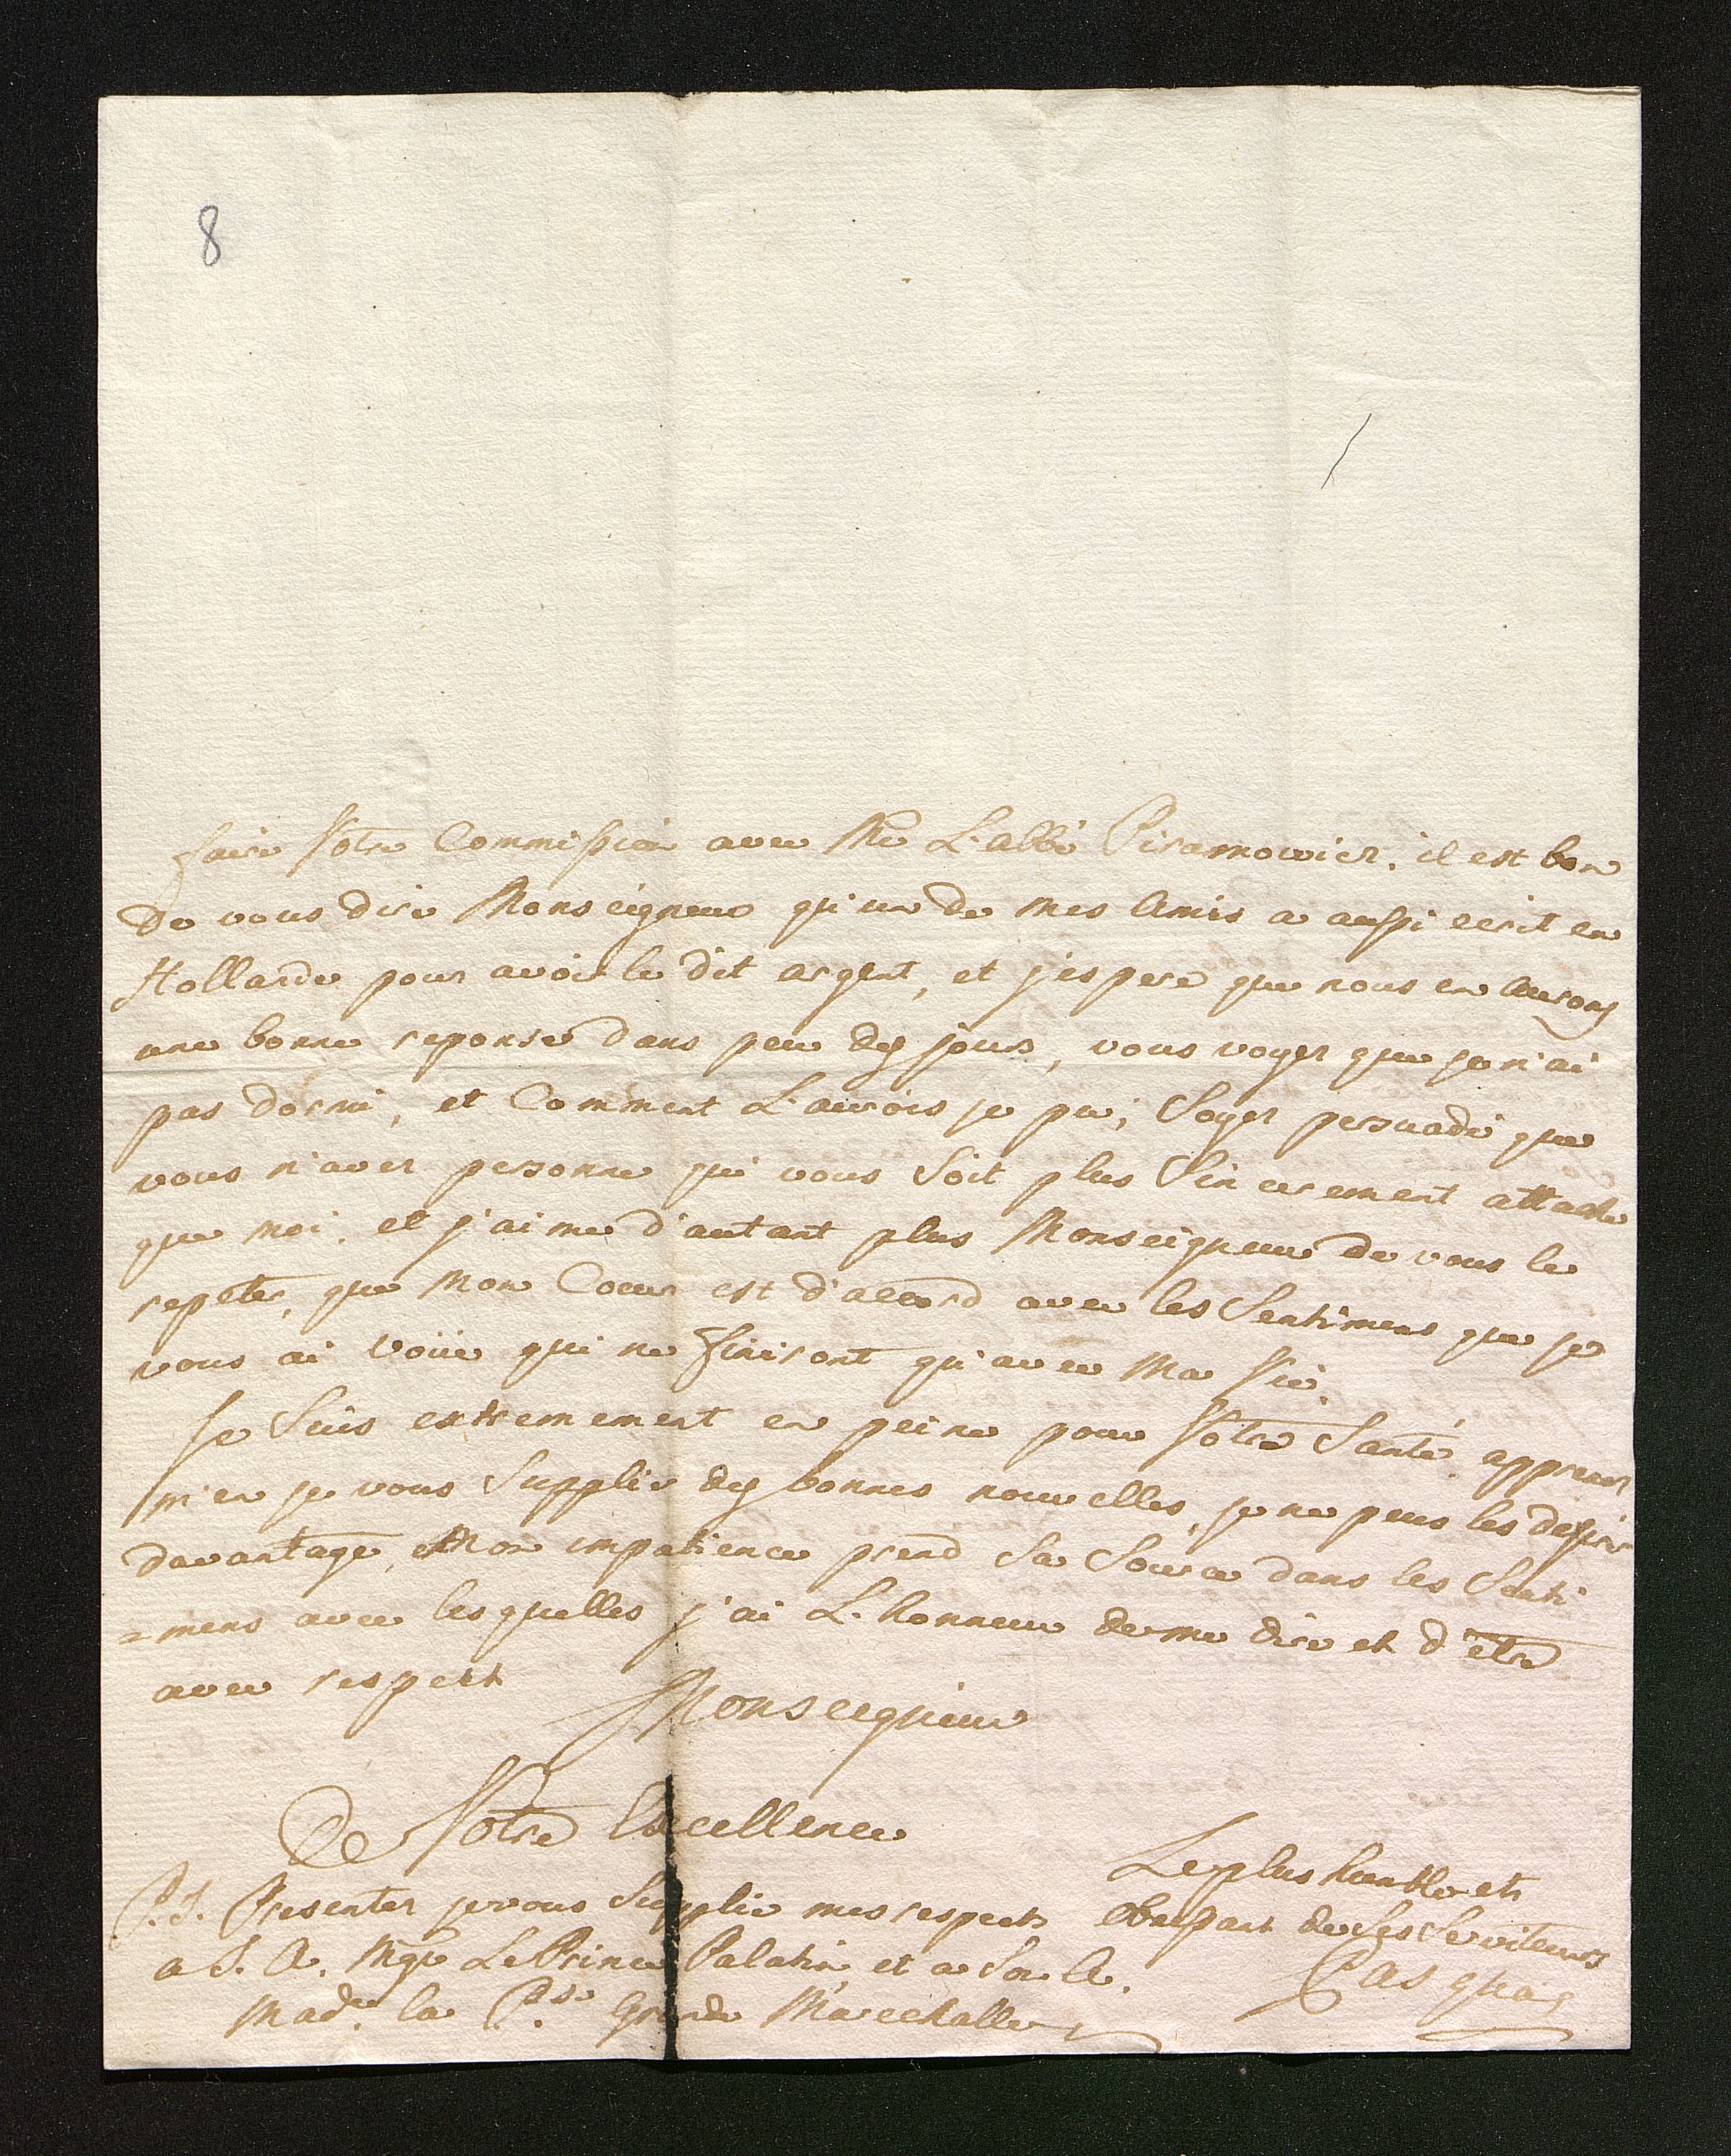 8
faire Votre Commission avec Mr L'abbé Piramowiez. il est bon
de vous dire Monseigneur qu'un de mes Amis a aussi ecrit en
Hollande pour avoir le dit argent, et j'espere que nous en aurons
une bonne reponse dans peu des jours, vous voyez que je n'ai
pas dormi, et Comment L'aurois je pu; Soyez persuadé que
vous n'avez personne qui vous Soit plus Sincerement attaché
que moi. et j'aime d'autant plus Monseigneur de vous le
repeter, que Mon Coeur est d'accord avec les Sentimens que je
vous ai voüé qui ne finiront qu'avec Ma Vie.
Je Suis extremement en peine pour Votre Santé. apprenez
m'en je vous Supplie des bonnes nouvelles, je ne peus les desirer
davantage, Mon impatience prend Sa Source dans les Senti
=mens avec lesquelles j'ai L'honneur de me dire et d'être
avec respect
Monseigneur
De Votre Excellence
Le plus humble et
P.S. Presentez je vous Supplie mes respects
obeissant de Ses Serviteurs
a S. A. Mgr Le Prince Palatin, et a Son A.
Pasquas
Made la Pse Grande Marechalle